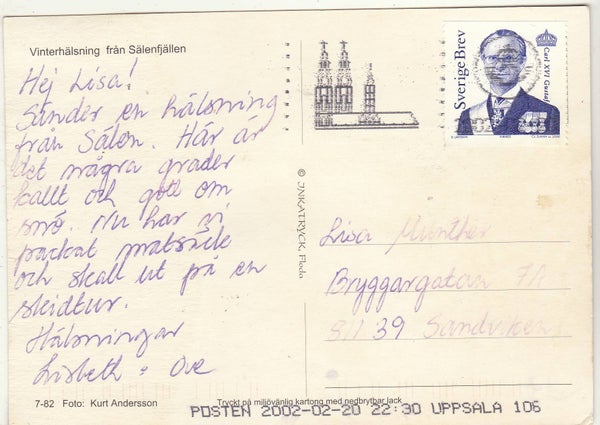 Vinterhälsning från Sälenfjällen
Hej Lisa!
Sänder en hälsning
från Sälen. Här är
det några grader
kallt och gott om
snö. Nu har vi
packat matsäck
och skall ut på en
skidtur.
Hälsningar
Lisbeth + Ove
7-82 Foto: Kurt Andersson
Tryckt på miljövänlig kartong med nedbrytbar lack
POSTEN 2002-02-20 22:30 UPPSALA 106
© INKATRYCK, Floda
Sverige Brev
Carl XVI Gustaf
2002
Lisa Münther
Bryggargatan 7A
811 39 Sandviken